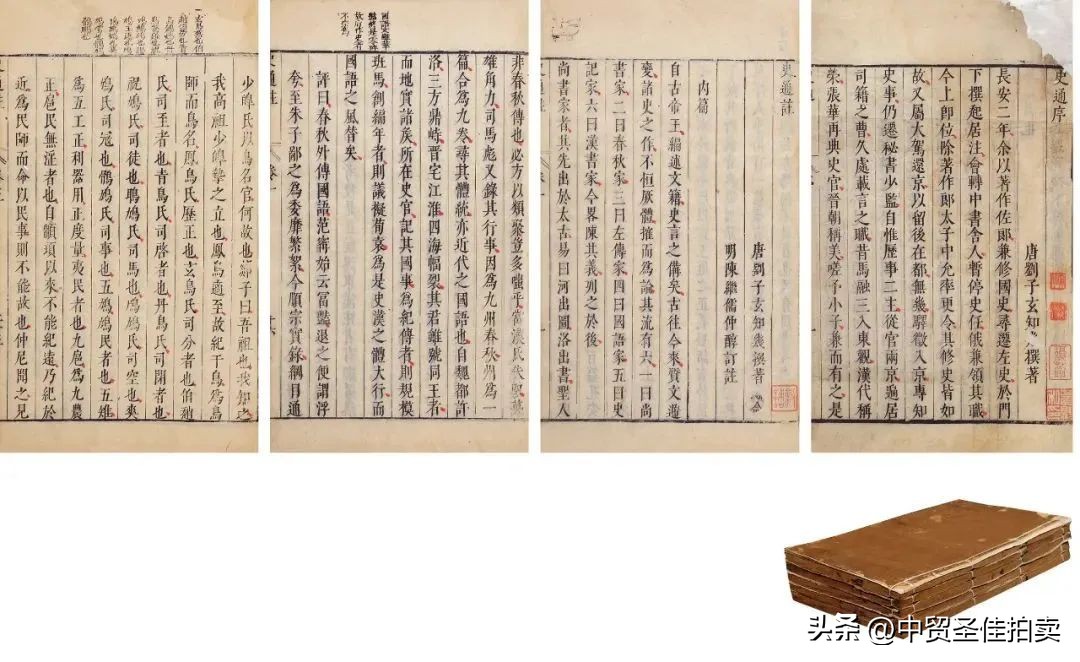 史通序
唐劉子玄知撰著
長安二年余以著作佐郎兼修國史尋遷左史於門
下撰起居注會轉中書舍人暫停史任俄兼領其職
今上即位除著作郎太子中允率更令其修史皆如
故又屬大駕還京以留後在都無幾驛徵入京專知
史事仍遷祕書少監自惟歷事二主從官兩京遍居
司籍之曹久處載言之職昔馬融三入東觀漢代稱
榮張華再典史官晉朝稱美嗟予小子兼而有之是
史通註
唐劉子玄知幾撰著
明陳繼儒仲醇訂註
內篇
自古帝王編述文籍史言之備矣古往今來質文遞
變諸史之作不恒厥體搉而為論其流有六一曰尚
書家二曰春秋家三曰左傳家四曰國語家五曰史
記家六曰漢書家今畧陳其義列之於後
尚書家者其先出於太古易曰河出圖洛出書聖人
非春秋傳也必方以類聚豈多嗤乎當漢氏失馭英
雄角力司馬彪又錄其行事因為九州春秋州為一
篇合為九卷尋其體統亦近代之國語也自魏都許
洛三方鼎峙晉宅江淮四海幅裂其君雖號同王者
而地實諸矦所在史官記其國事為紀傳者則規模
班馬創編年者則議擬荀袁為是史漢之體大行而
國語之風替矣
評曰春秋外傳國語范甯始云富豔退之便謂浮
夸至朱子鄙之為委靡繁絮今順宗實錄綱目通
史通註 卷一
少皡氏以鳥名官何故也郯子曰吾祖也我知之
我高祖少皡摯之立也鳳鳥適至故紀于鳥為鳥
師而鳥名鳳鳥氏歷正也玄鳥氏司分者也伯趙
氏司至者也青鳥氏司啓者也丹鳥氏司閉者也
祝鳩氏司徒也鴡鳩氏司馬也鳲鳩氏司空也爽
鳩氏司寇也鶻鳩氏司事也五鳩鳩民者也五雉
為五工正利器用正度量夷民者也九扈為九農
正扈民無淫者也自顓頊以來不能紀遠乃紀於
近為民師而命以民事則不能故也仲尼聞之見
史通註 卷一
头条 @中贸圣佳拍卖